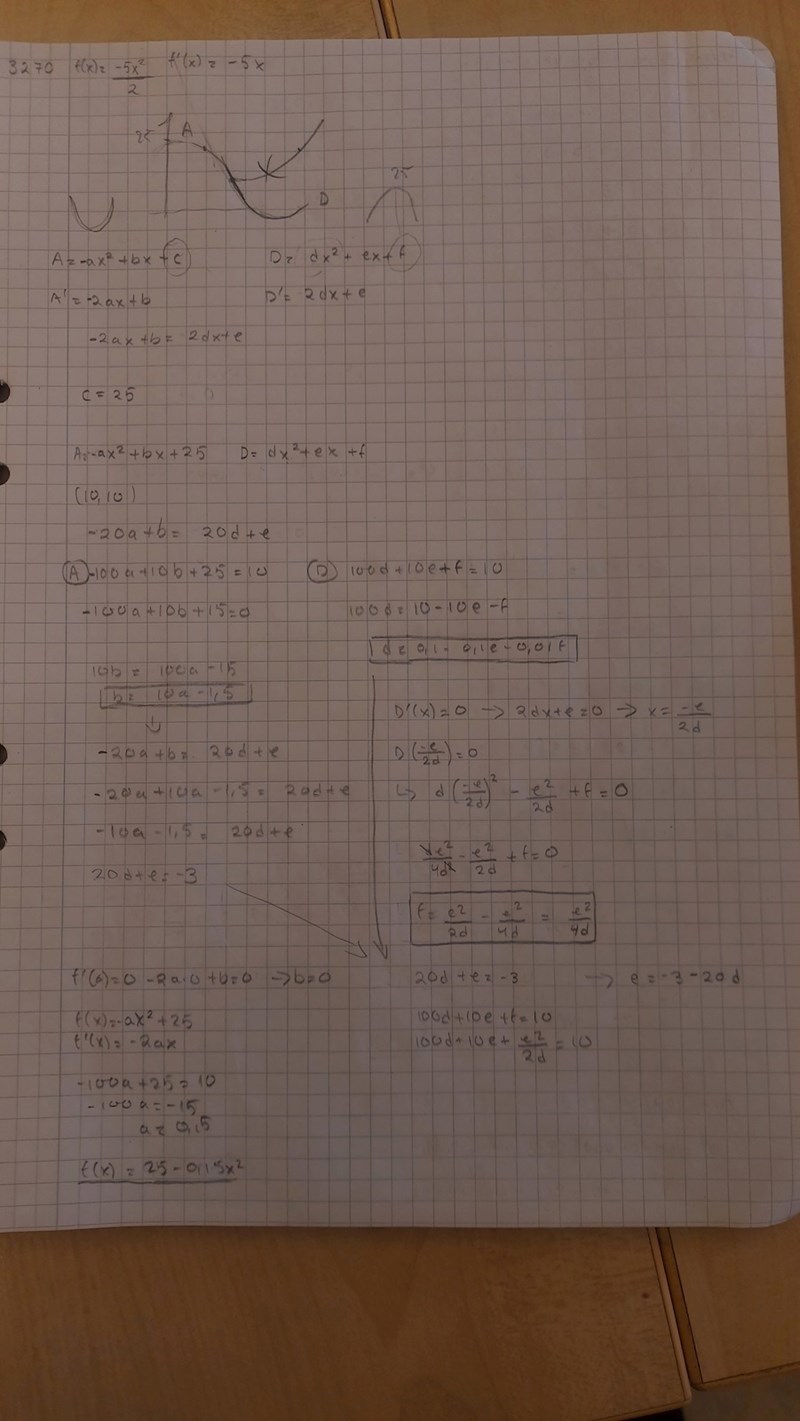 3270 f(x)= -5x²/2 f'(x) = -5x
25 A
D
25
A=-ax²+bx+c D= dx²+ex+f
A'=-2ax+b D'= 2dx+e
-2ax+b= 2dx+e
c=25
A=-ax²+bx+25 D= dx²+ex+f
(10,10)
-20a+b= 20d+e
(A) -100a+10b+25=10 (D) 100d+10e+f=10
-100a+10b+15=0 100d=10-10e-f
d= 0,1-0,1e-0,01f
10b = 100a-15
b= 10a-1,5
D'(x)=0 → 2dx+e=0 → x= -e/2d
-20a+b= 20d+e D(-e/2d)=0
-20a+10a-1,5= 20d+e ↳ d(-e/2d)² - e²/2d +f=0
-10a-1,5= 20d+e
e²/4d - e²/2d + f=0
20d+e=-3
f= e²/2d - e²/4d = e²/4d
f'(0)=0 -2a·0+b=0 →b=0 20d+e=-3 → e=-3-20d
f(x)=-ax²+25 100d+10e+f=10
f'(x)=-2ax 100d+10e+ e²/2d = 10
-100a+25=10
-100a=-15
f(x) = 25-0,15x²